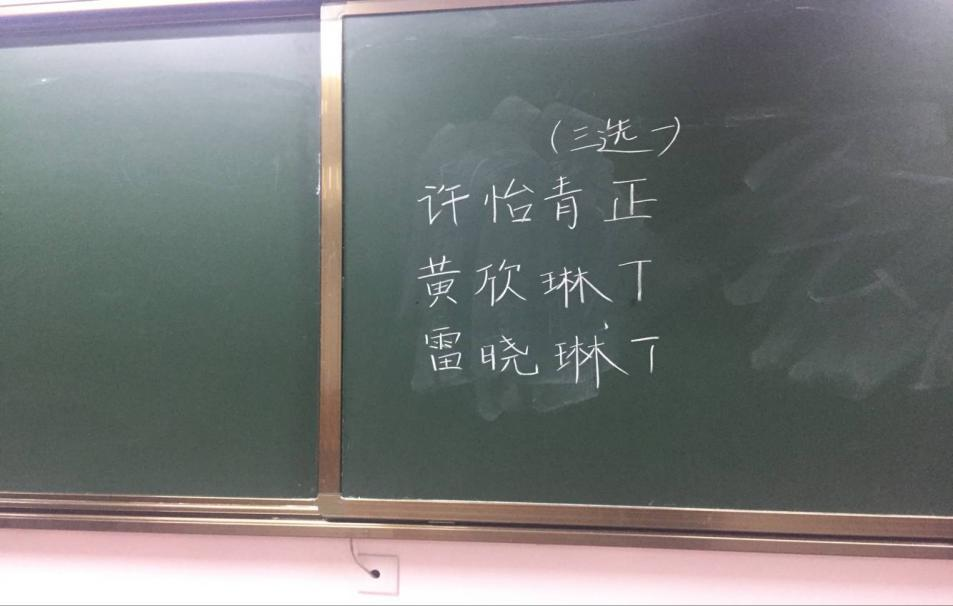 (三选一)
许怡青 正
黄欣琳 丅
雷晓琳 丅